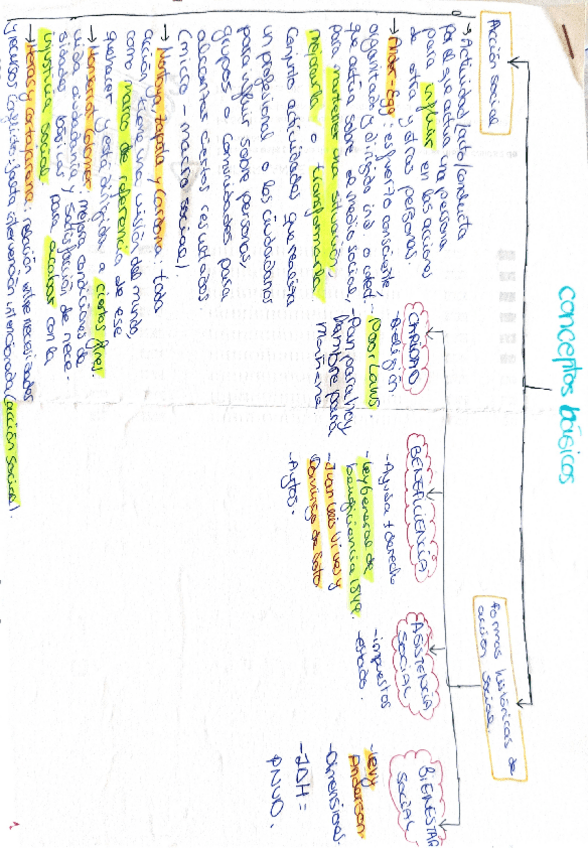 conceptos básicos
Acción social
→ Actividad/acto/conducta
por el que actúa una persona
para influir en las acciones
de otra y otras personas.
→ Ander-Egg: esfuerzo consciente,
organizado y dirigido ind. o colect.
que actúa sobre el medio social,
para mantener una situación,
mejorarla o transformarla.
Conjunto actividades que realiza
un profesional o los ciudadanos
para influir sobre personas,
grupos o comunidades para
alcanzar ciertos resultados
(micro - macro social).
Zapata y Cardona: toda
acción tiene una visión del mundo,
como marco de referencia de ese
quehacer y está dirigida a ciertos fines.
→ Colomer: mejora condiciones de
vida ciudadanía y satisfacción de nece-
sidades básicas para acabar con la
injusticia social.
→ Heras y Cortajarena: relación entre necesidades
y recursos conflicto: hasta intervención intencionada (acción social).
formas históricas de
acción social.
CARIDAD
- Religión
- Poor Laws.
- Pan para hoy
hambre para
mañana
BENEFICIENCIA
- Ayuda + derecho
- Ley General de
beneficiencia 1849.
- Juan Luis Vives y
Domingo de Soto
- Aytos.
ASISTENCIA
SOCIAL
- impuestos
- estado.
BIENESTAR
SOCIAL
- Levy
Anderson
- Dimensiones.
- IDH =
PNUD.
1